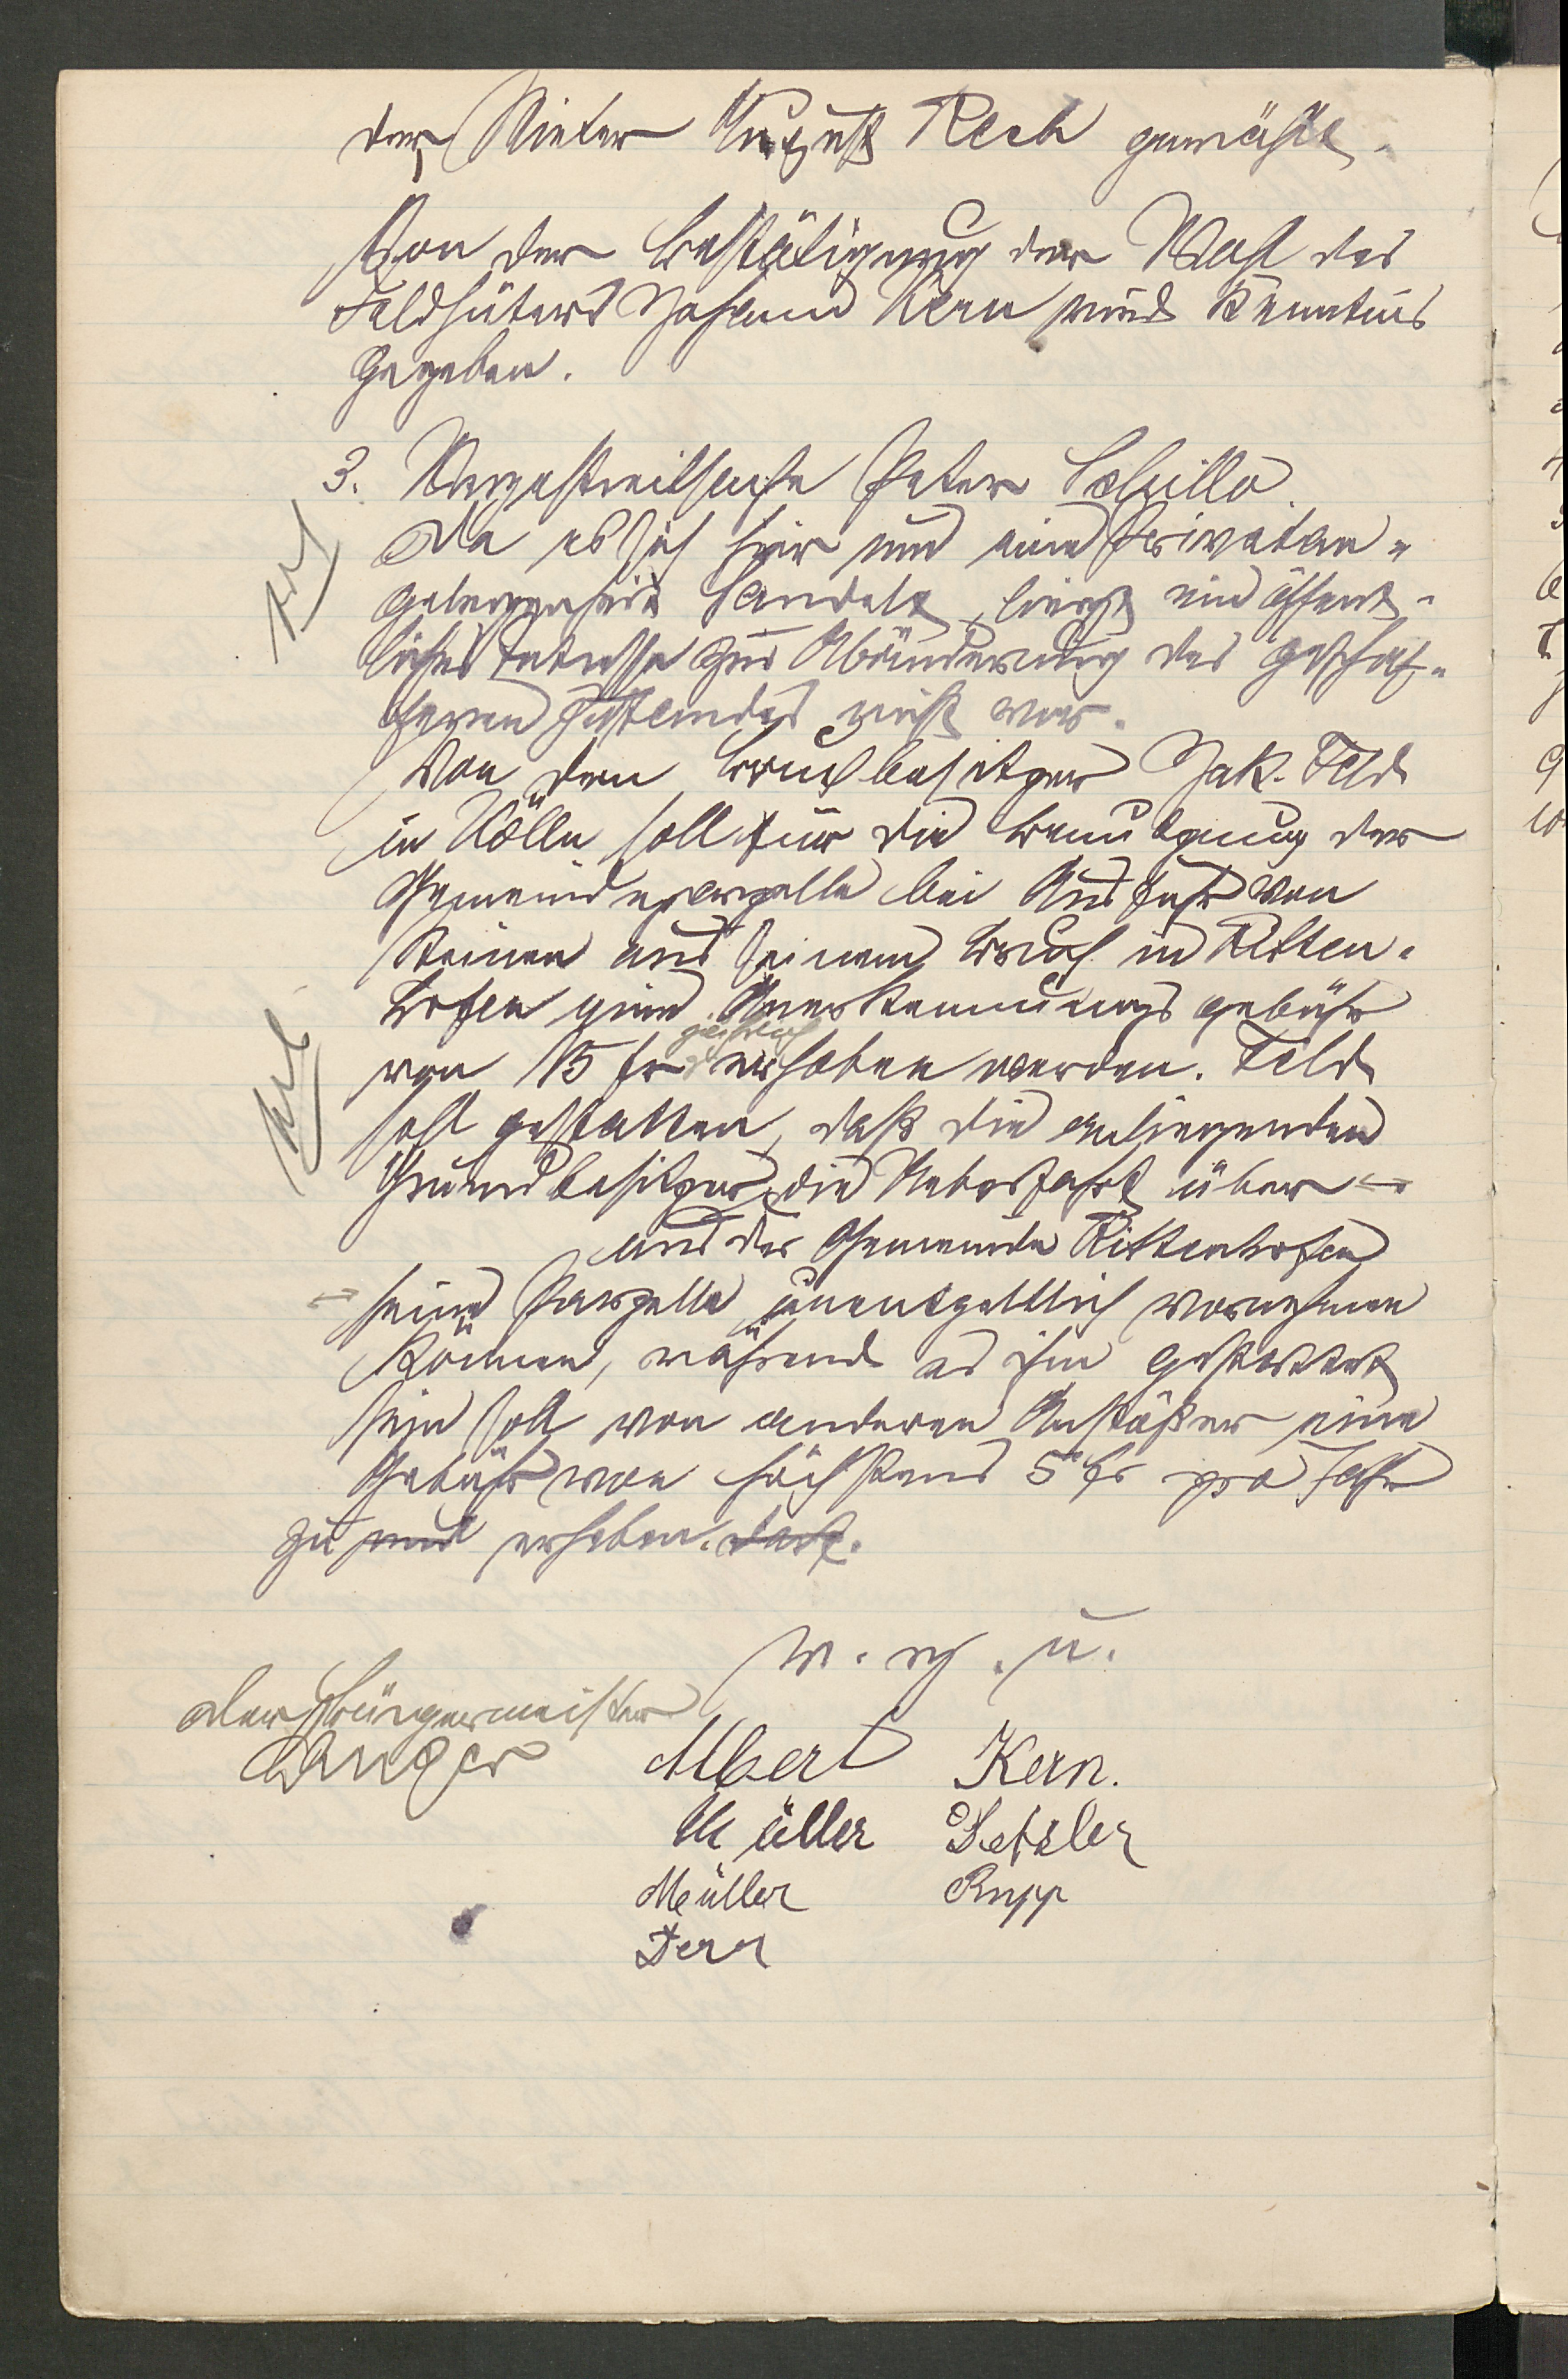 der Mieter August Rech gewählt.
Von der Bestätigung der Wahl des
Feldhüters Johann Kern wird Kenntnis
gegeben.
3. Wegestreitsache Peter Schillo.
Da es sich hier um eine Privatan-
gelegenheit handelt, liegt ein öffent-
liches Intresse zur Abänderung des geschaf-
fenen Zustandes nicht vor.
Von dem Bruchbesitzer Jak. Feld
in Kölln soll für die Benutzung der
Gemeindeparzelle bei Ausfuhr von
Steinen aus seinem Bruch in Ritten-
hofen eine Anerkennungsgebühr
jährlich
von 15 fr erhoben werden. Feld
soll gestatten, daß die anliegenden
Grundbesitzer die Ueberfahrt über
aus der Gemeinde Rittenhofen
seine Parzelle unentgeltlich vornehmen
können, während es ihm gestattet
sein soll von anderen Anstößer eine
Gebühr von höchstens 5 fr pro Jahr
zu erheben. darf.
v. g. u.
Der Bürgermeister
Albert Kern.
Müller Setzler
Müller Rupp
Dern